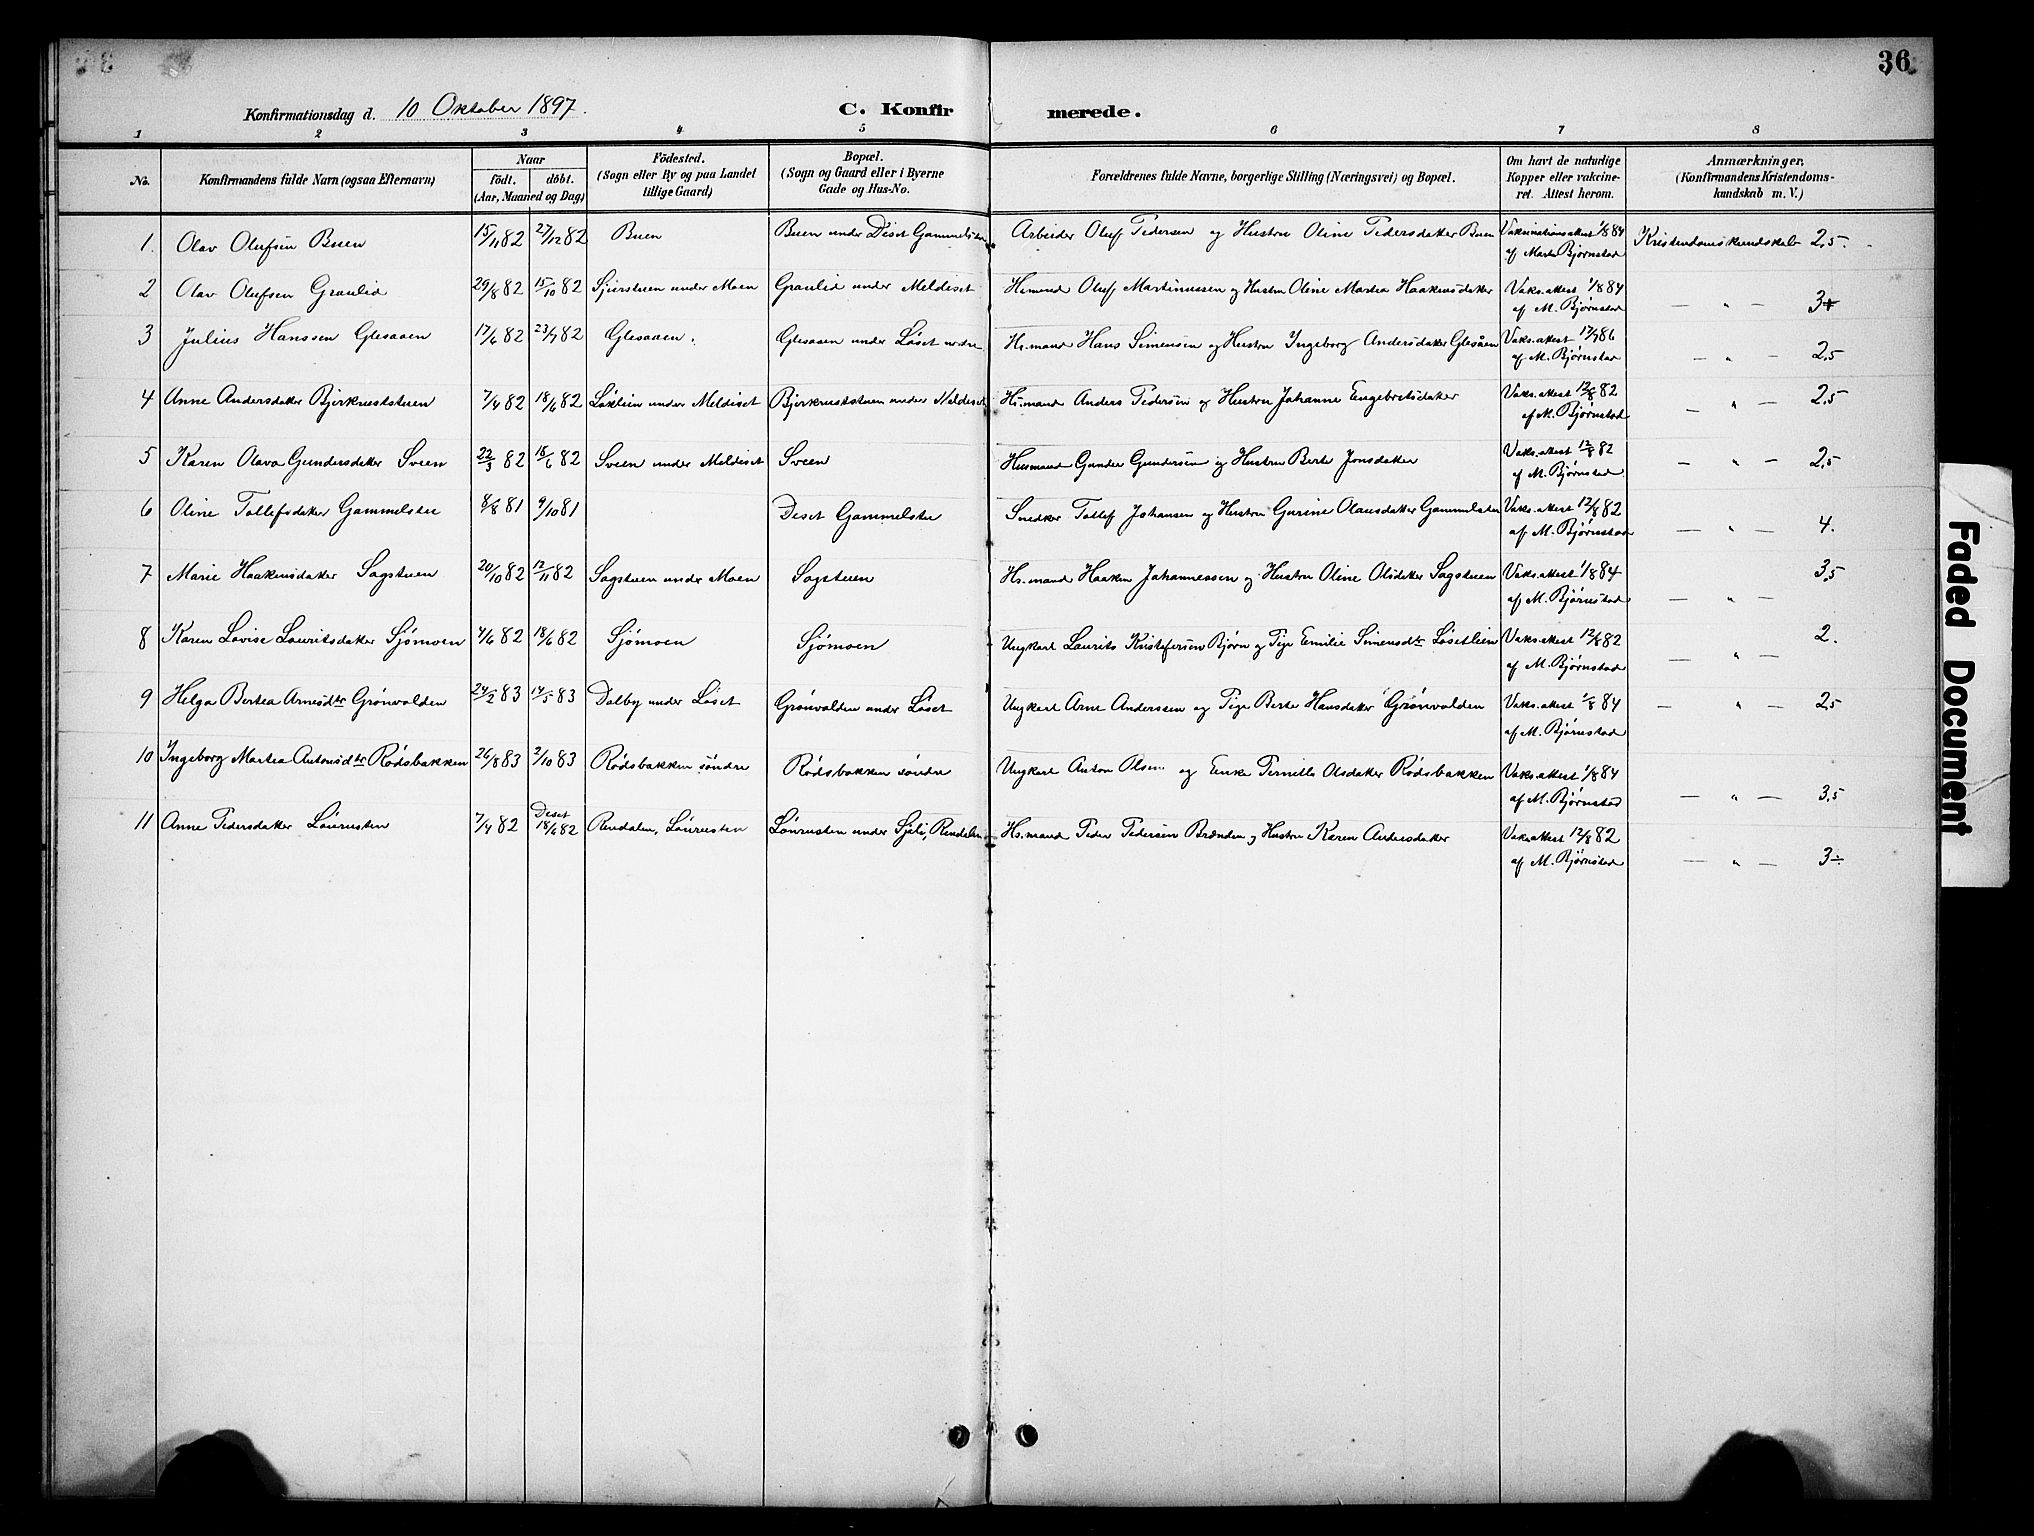 36
Konfirmationsdag d. 10 Oktober 1897.
C. Konfir merede.
1 2 3 4 5 6 7 8
No.
Konfirmandens fulde Navn (ogsaa Efternavn)
Naar
født. døbt.
(Aar, Maaned og Dag)
Födested.
(Sogn eller By og paa Landet
tillige Gaard)
Bopæl.
(Sogn og Gaard eller i Byerne
Gade og Hus-No.
Forældrenes fulde Navne, borgerlige Stilling (Næringsvei) og Bopæl.
Om havt de naturlige
Kopper eller vakcine-
ret. Attest herom.
Anmærkninger,
(Konfirmandens Kristendoms-
kundskab m. V.)
1. Olav Olufsen Buen 15/11 82 27/12 82 Buen Buen under Deset Gammelsten Arbeider Oluf Pedersen og Hustru Oline Pedersdatter Buen Vakcinationsattest 1/8 84 Kristendomskundskab 2,5.
af Marte Bjørnstad
2 Olav Olufsen Graulid 29/8 82 15/10 82 under Moen Graulid under Meldiset Hsmand Oluf Martinussen og Hustru Oline Martea Haakensdatter Vaks. attest 1/8 84
af M. Bjørnstad — " — 3+
3 Julius Hanssen Glesaaen 17/6 82 23/7 82 Glesaaen. Glesaaen under Løset nordre Hs. mand Hans Simensen og Hustru Ingeborg Andersdatter Glesåen Vaks. attest 17/7 86
af M. Bjørnstad — " — 2,5
4 Anne Andersdatter Bjerkneststuen 7/4 82 18/6 82 Løklien under Meldiset Bjerkneststuen under Meldiset Hs. mand Anders Pedersen og Hustru Johanne Engebretsdatter Vaks. attest 12/8 82
af M. Bjørnstad — " — 2,5
5 Karen Olava Gundersdatter Sveen 22/3 82 18/6 82 Sveen under Meldiset Sveen Husmand Gunder Gundersen og Hustru Berte Jonsdatter Vaks. attest 12/8 82
af M. Bjørnstad. — " — 2,5
6 Oline Tollefsdatter Gammelsten 8/8 81 9/10 81 Deset Gammelsten Snedker Tollef Johansen og Hustru Gurine Olausdatter Gammelsten Vaks. attest 12/8 82
af M. Bjørnstad — " — 4.
7 Marie Haakensdatter Sagstuen 20/10 82 12/11 82 Sagstuen under Moen Sagstuen Hs. mand Haaken Johannessen og Hustru Oline Olsdatter Sagstuen Vaks. attest 1/8 84 3,5
af M. Bjørnstad — " —
8 Karen Lovise Lauritsdatter Sjømoen 4/6 82 18/6 82 Sjømoen Sjømoen Ungkarl Laurits Kristofersen Bjørn og Pige Emilie Simensdtr Løsetlien Vaks. attest 12/8 82 2.
af M. Bjørnstad — " —
9 Helga Bertea Arnesdtr Grønvolden 24/2 83 14/5 83 Dalby under Løset Grønvolden under Løset Ungkarl Arne Anderssen og Pige Berte Hansdatter Grønvolden Vaks. attest 1/8 84 — " — 2,5
af M. Bjørnstad
10 Ingeborg Martea Antonsdtr Rödsbakken 26/8 83 2/10 83 Rödsbakken söndre Rödsbakken söndre Ungkarl Anton Olsen og Enke Pernille Olsdatter Rödsbakken Vaks. attest 1/8 84
af M. Bjørnstad — " — 3,5
11 Anne Pedersdatter Lönrusten 7/4 82 Deset 18/6 82 Rendalen, Lönrusten Lönrusten under Sjøli, Rendalen Hs. mand Peder Pedersen Brænden og Hustru Karen Andersdatter Vaks attest 12/8 82
af M. Bjørnstad — " — 3÷
Faded Document